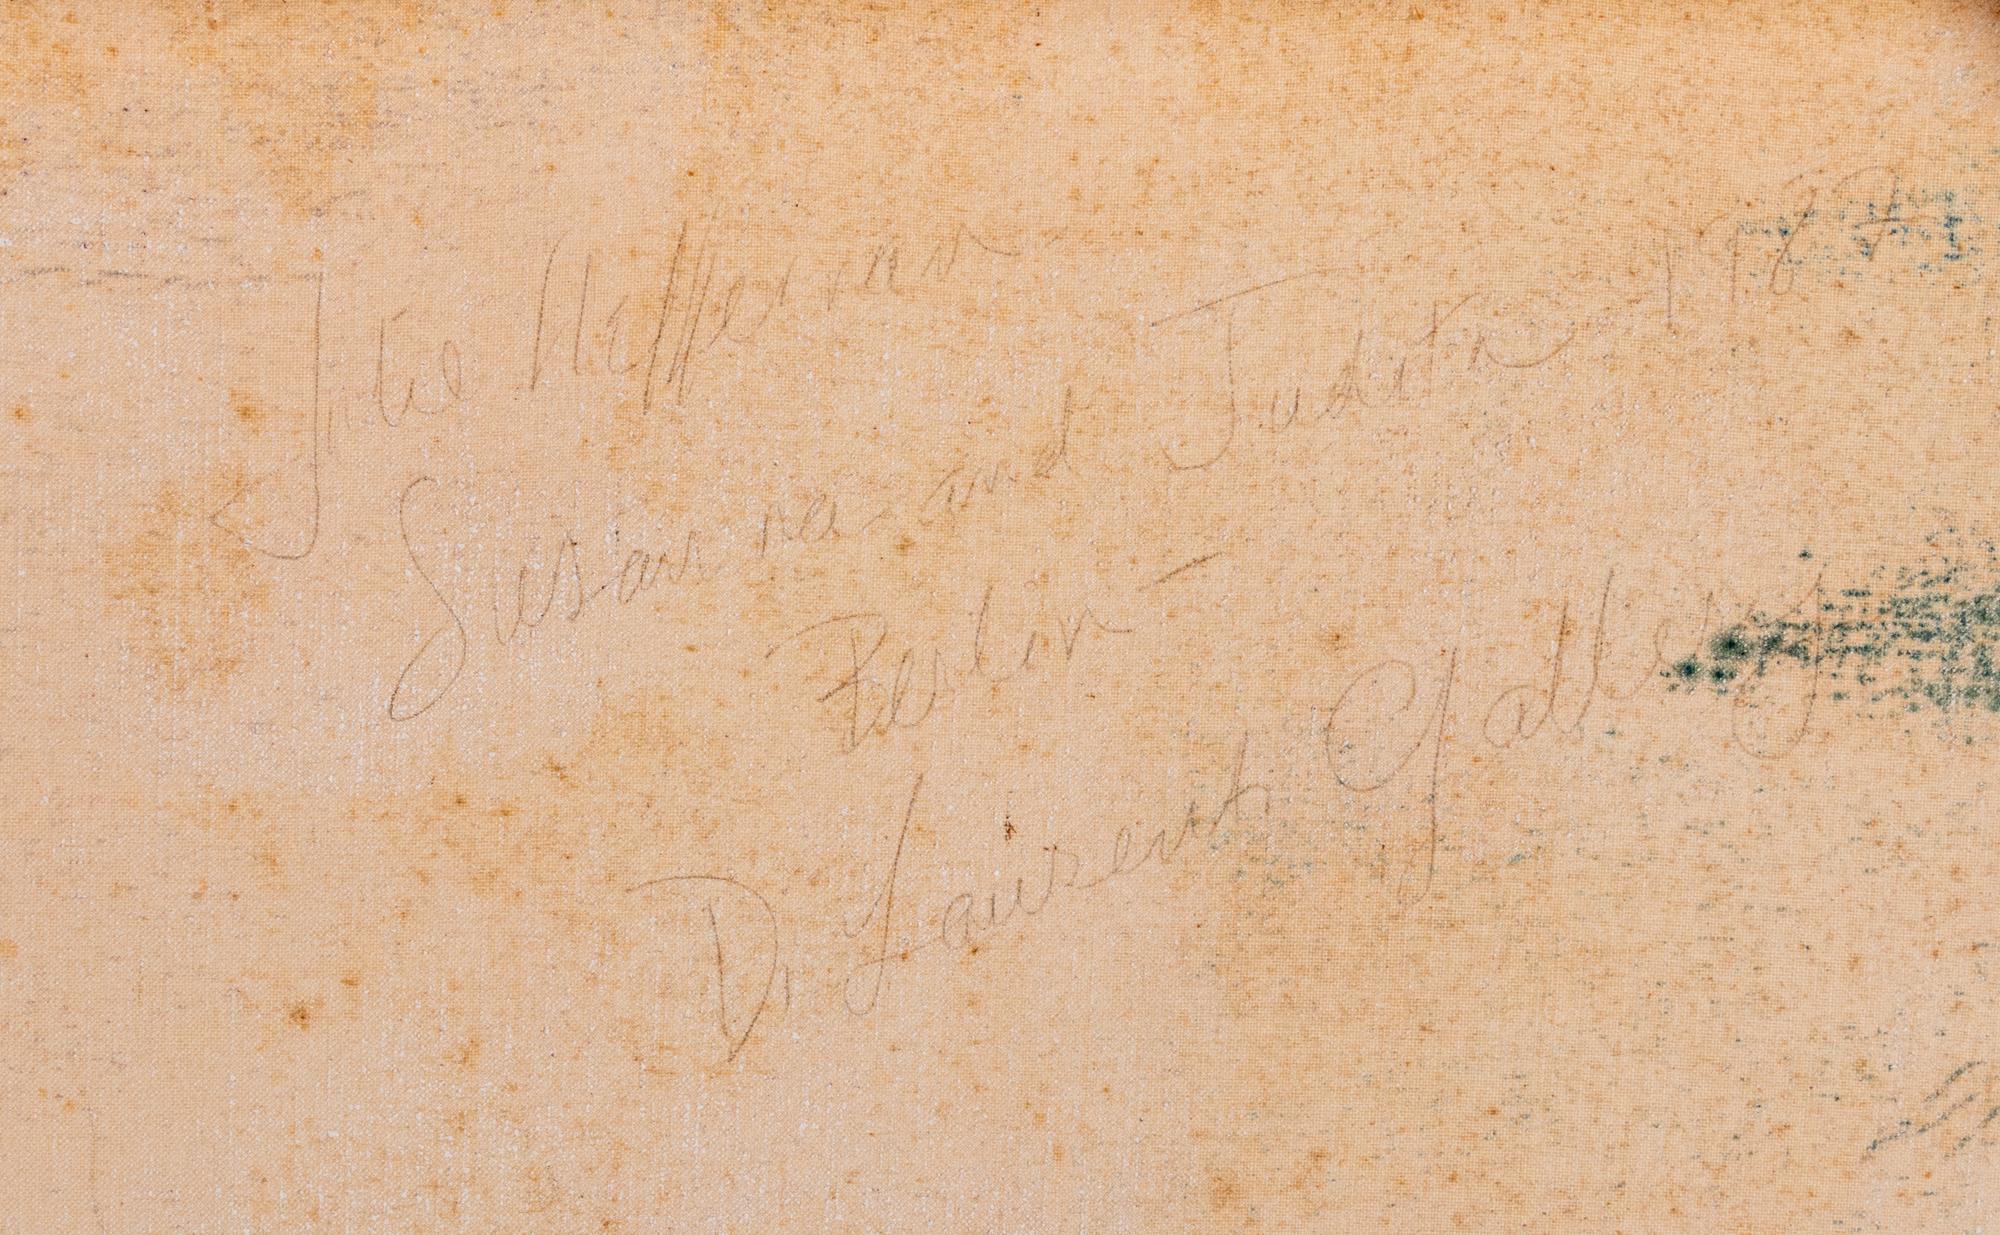 Julie Heffernan
Susanna and Judith 1987
Berlin
Di Laurenti Gallery